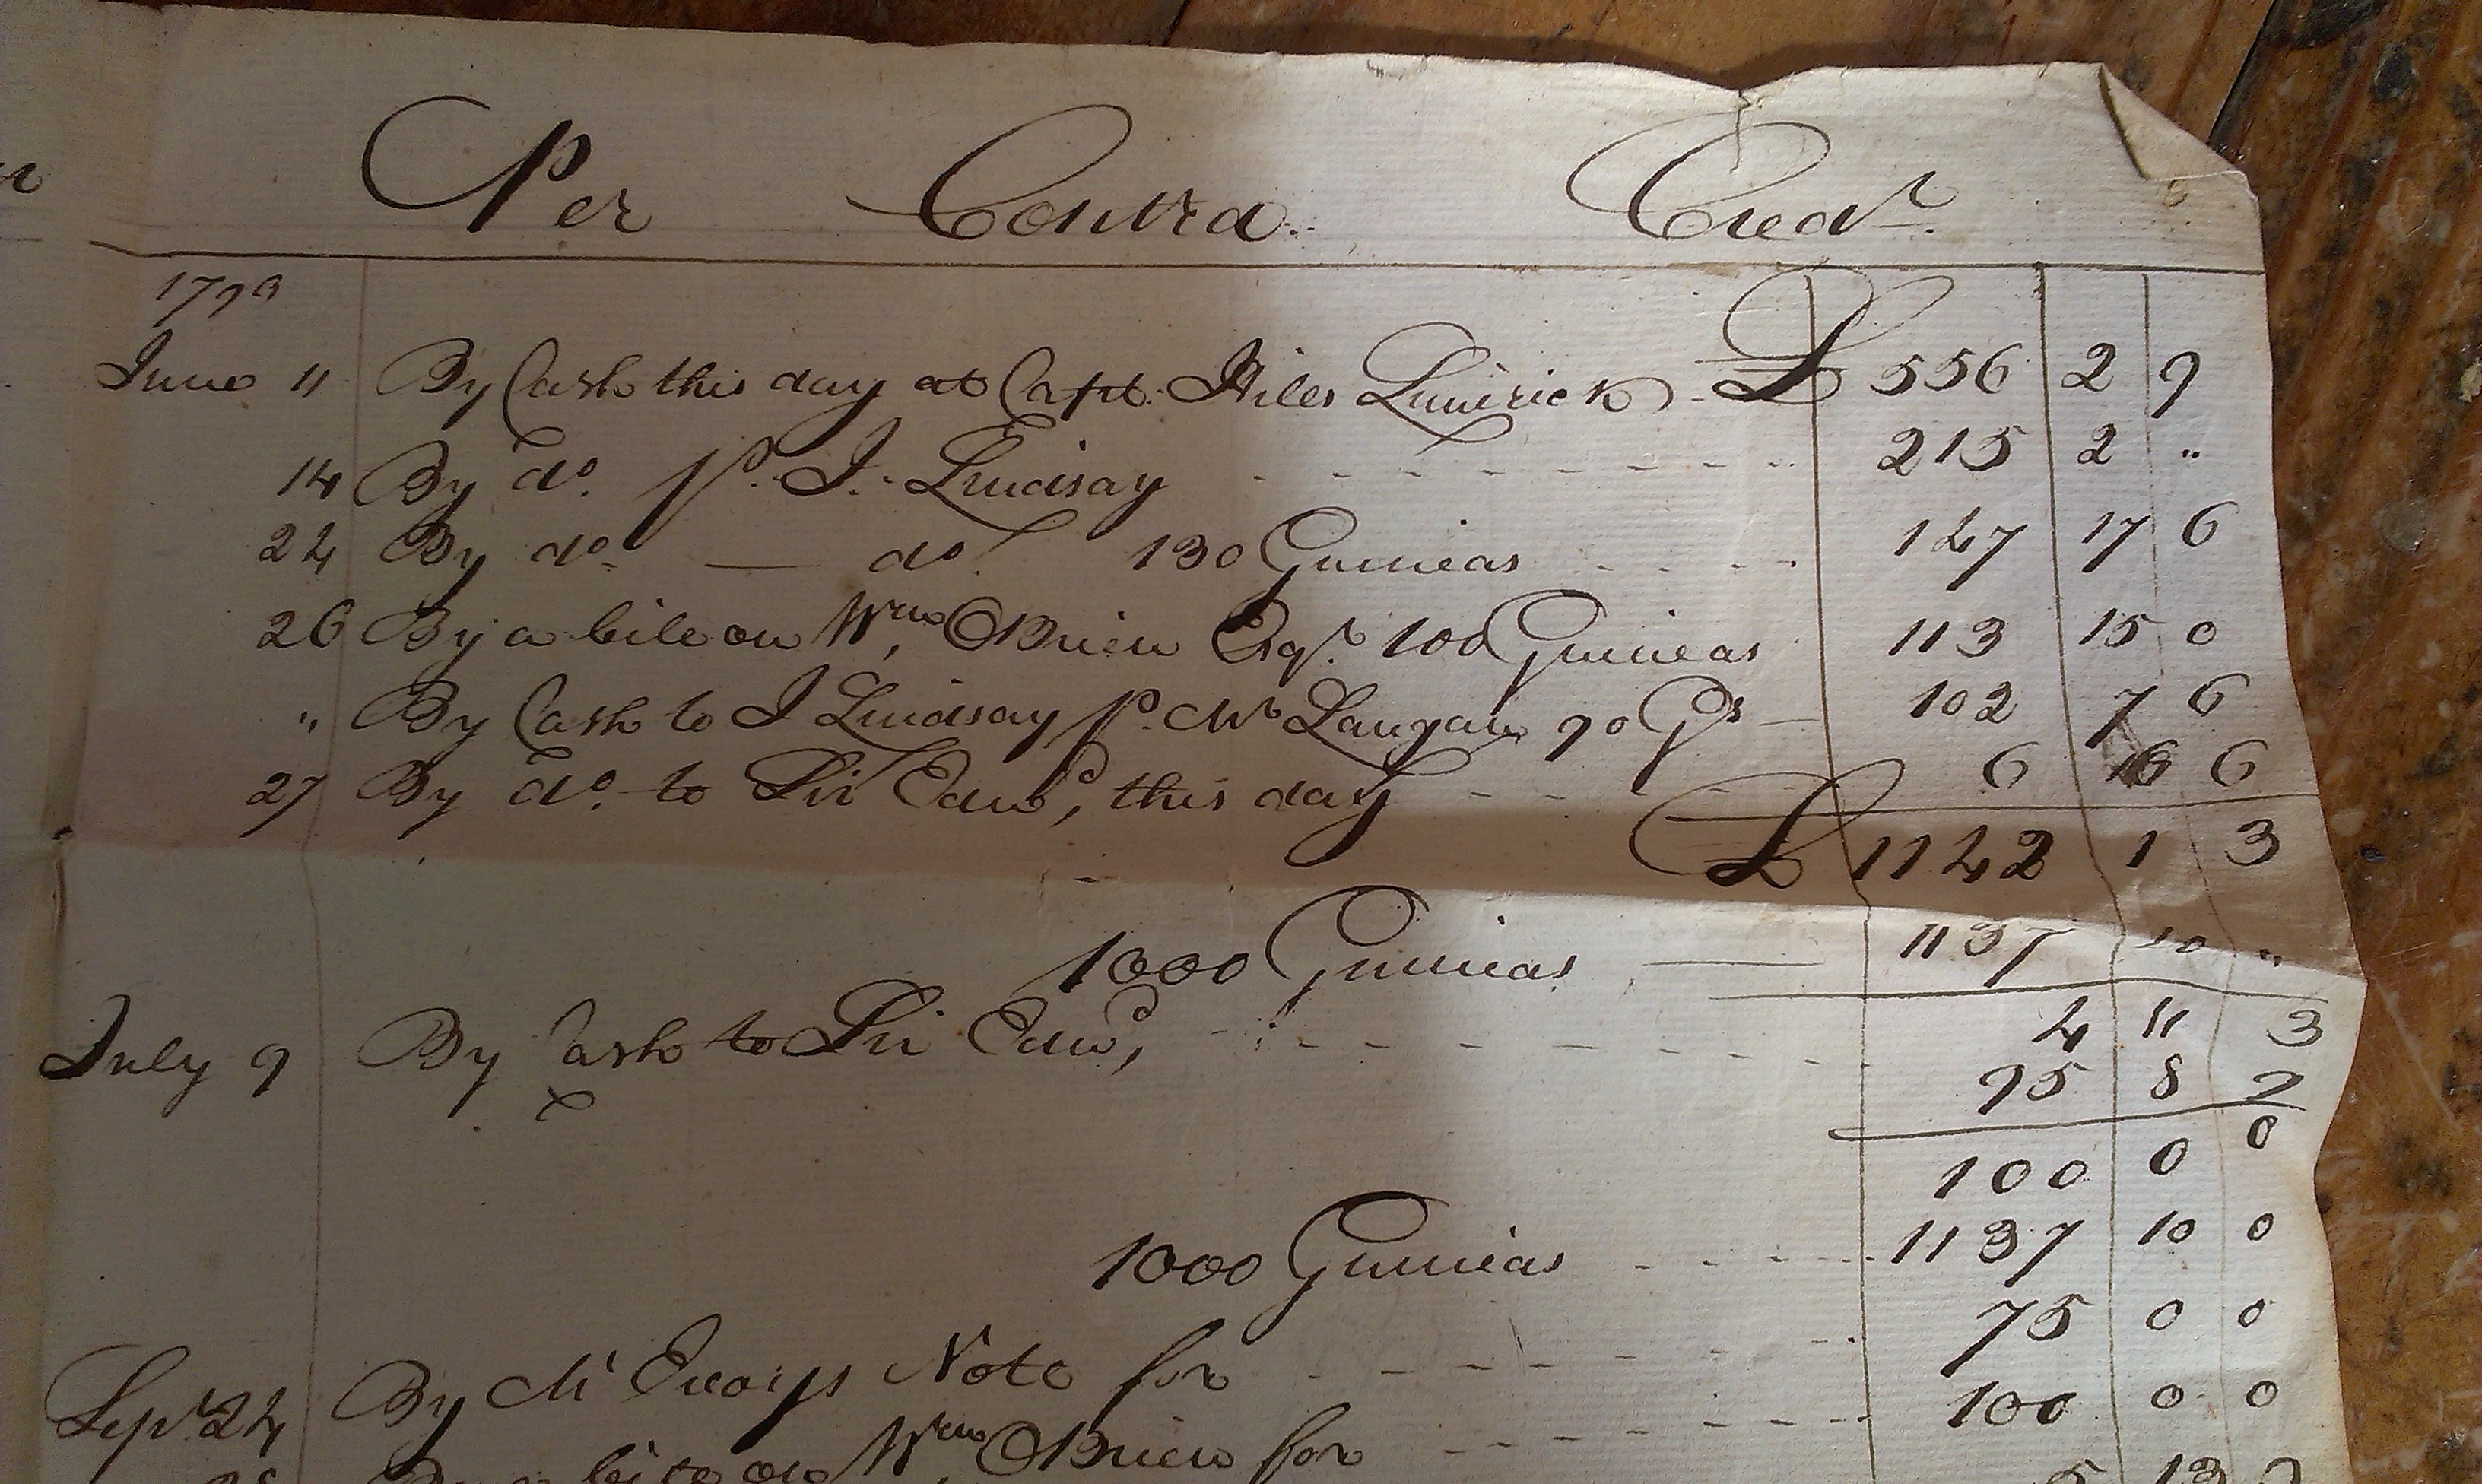 Per Contra Credr.
1799
June 11 By Cash this day at Capt. Hiles Limerick £ 556 2 9
14 By do. pr. J. Lindsay 215 2 "
24 By do. — do. 130 Guineas 147 17 6
26 By a bill on Wm. OBrien Esqr. 100 Guineas 113 15 0
" By Cash to J Lindsay pr. Mr Langan 90 Gs 102 7 6
27 By do. to Sir Edwd, this day 6 16 6
£ 1142 1 3
1000 Guineas 1137 10 "
4 11 3
July 9 By Cash to Sir Edwd, 95 8 9
100 0 0
1000 Guineas 1137 10 0
75 0 0
Sepr 24 By Mr Note for 100 0 0
By a bill on Wm OBrien for 5 13